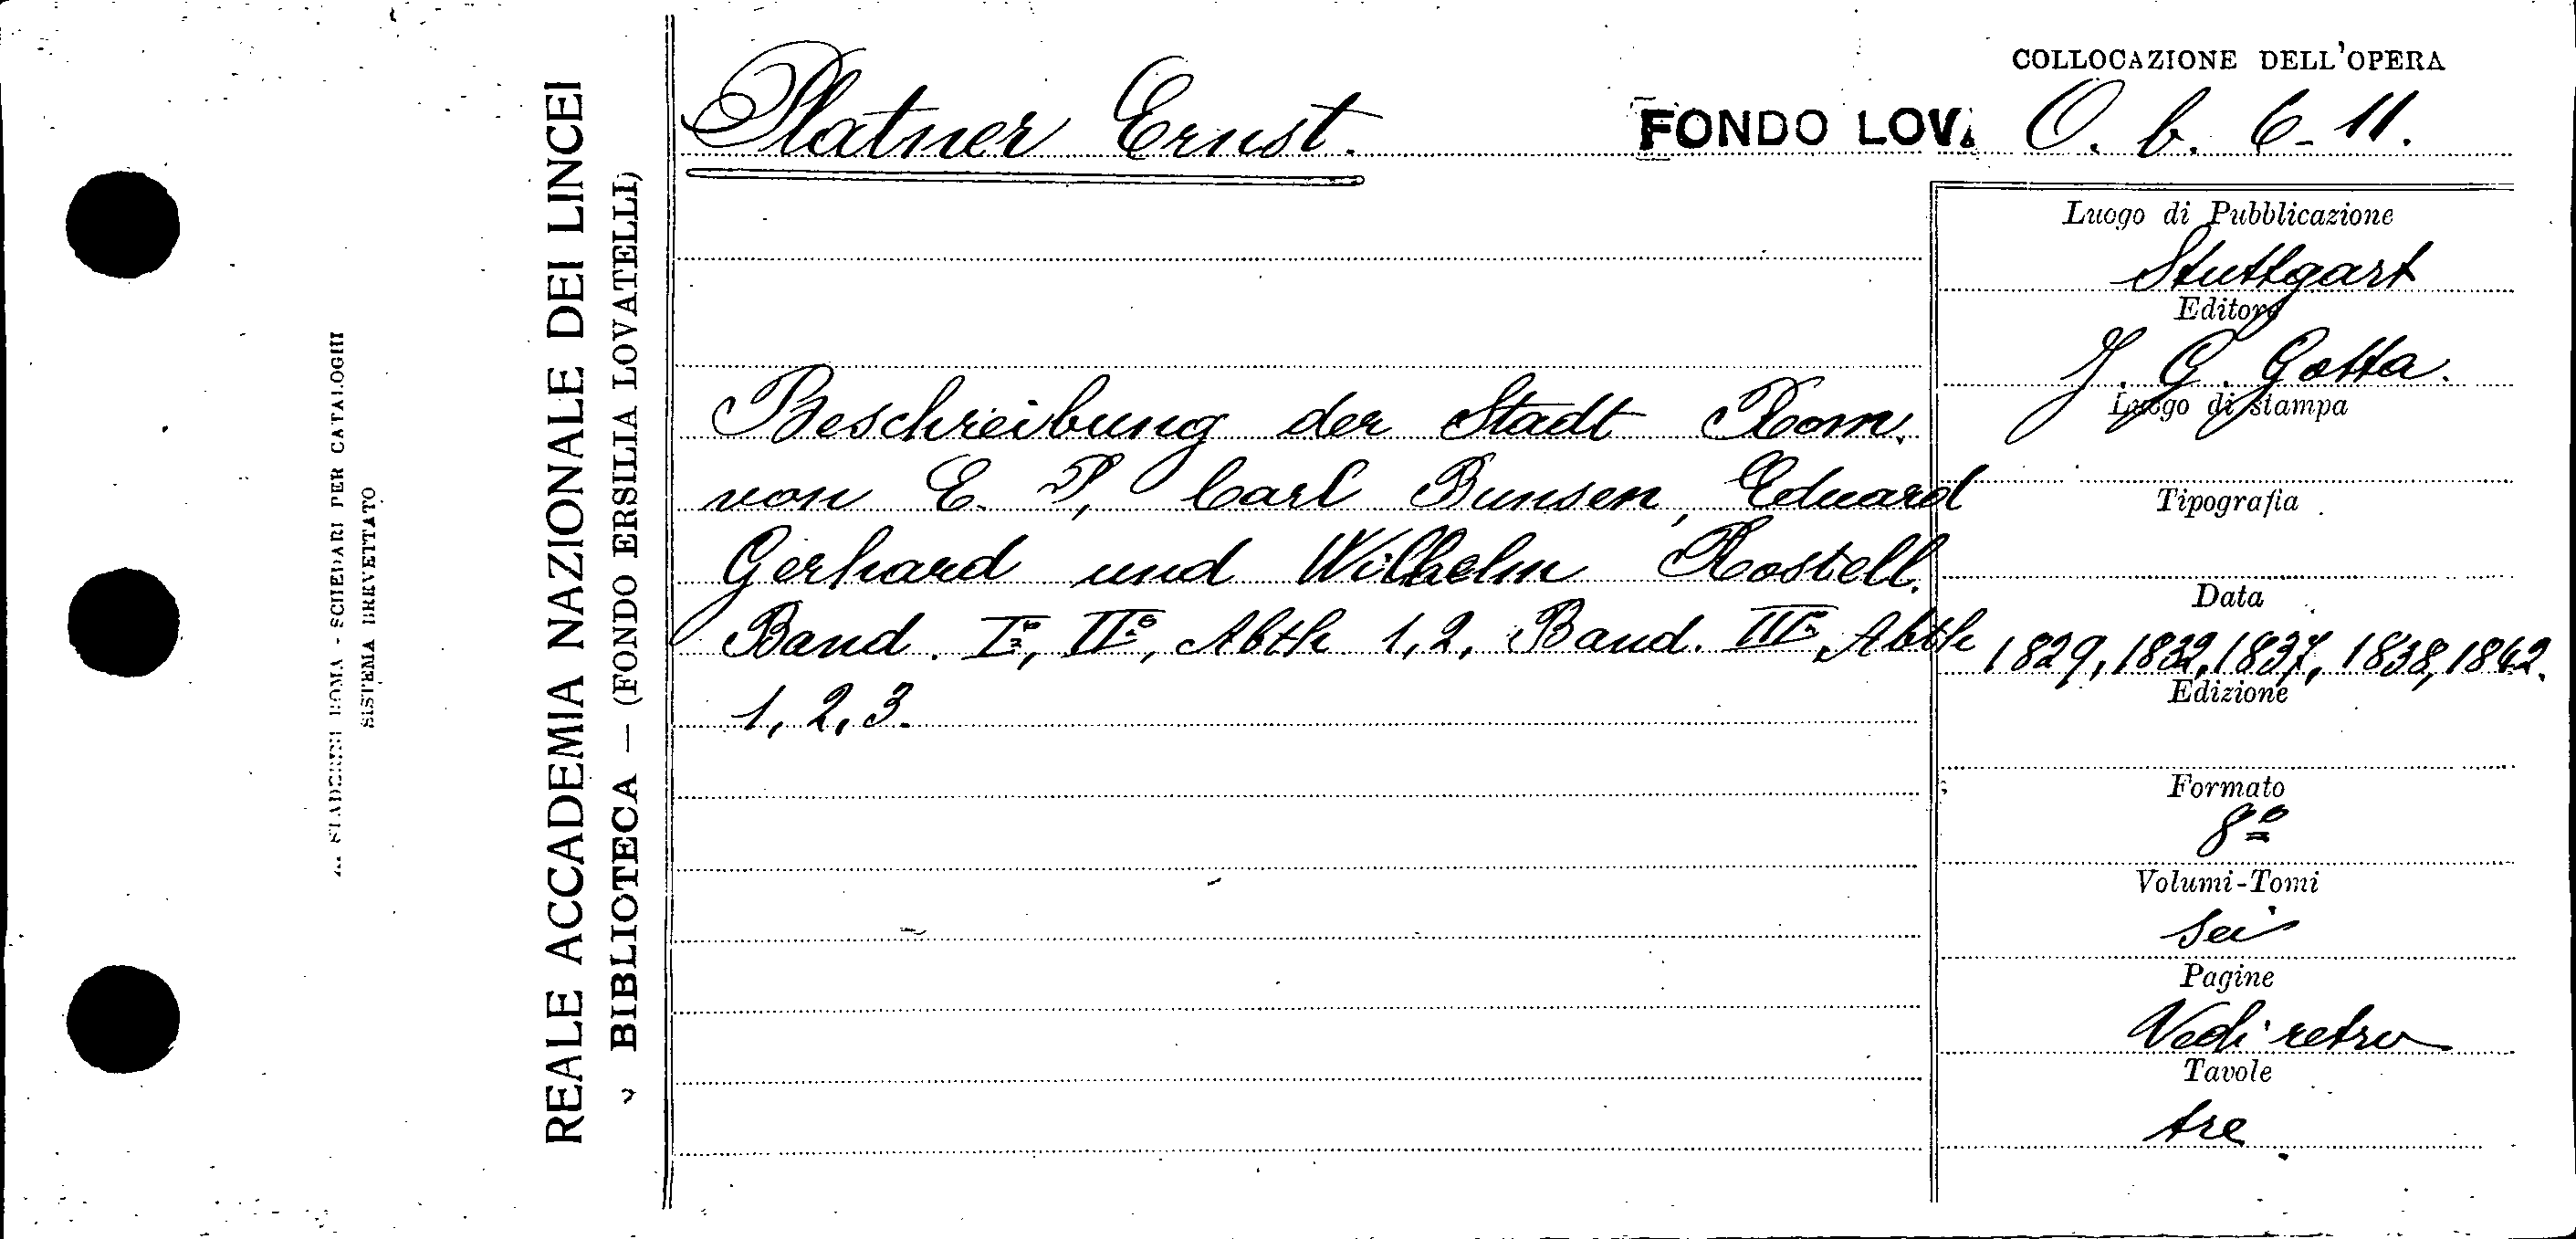 COLLOCAZIONE DELL'OPERA
Platner Ernst.
FONDO LOV. O. b. 6-11.
REALE ACCADEMIA NAZIONALE DEI LINCEI
BIBLIOTECA — (FONDO ERSILIA LOVATELLI)
ROMA - SCHEDARI PER CATALOGHI
SISTEMA BREVETTATO
Beschreibung der Stadt Rom.
von E. P, Carl Bunsen, Eduard
Gerhard und Wilhelm Rostell.
Band. I°, II°, Abth 1,2, Band. III° Abth
1, 2, 3.
Luogo di Pubblicazione
Stuttgart
Editore
J. G. Gotta.
Luogo di stampa
Tipografia
Data
1829, 1832, 1837, 1838, 1842.
Edizione
Formato
8º
Volumi-Tomi
sei
Pagine
Vedi retro
Tavole
tre